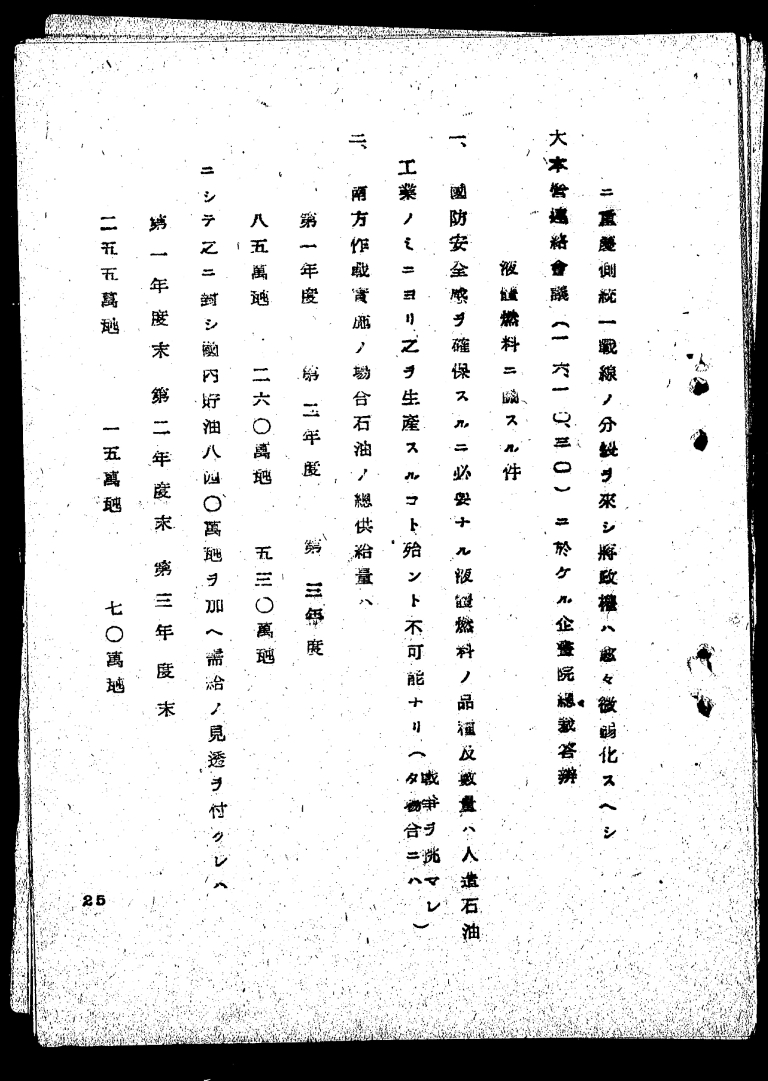 ニ重慶側統一戰線ノ分裂ヲ來シ將政權ハ愈々微弱化スヘシ
大本營連絡會議(一六一〇三〇)ニ於ケル企畫院總裁答辨
液體燃料ニ關スル件
一、國防安全感ヲ確保スルニ必要ナル液體燃料ノ品種及數量ハ人造石油
工業ノミニヨリ之ヲ生産スルコト殆ント不可能ナリ(戰爭ヲ挑マレタ場合ニハ)
二、南方作戰實施ノ場合石油ノ總供給量ハ
第一年度 第二年度 第三年度
八五萬竏 二六〇萬竏 五三〇萬竏
ニシテ之ニ對シ國內貯油八四〇萬竏ヲ加ヘ需給ノ見透ヲ付クレハ
第一年度末 第二年度末 第三年度末
二五五萬竏 一五萬竏 七〇萬竏
25